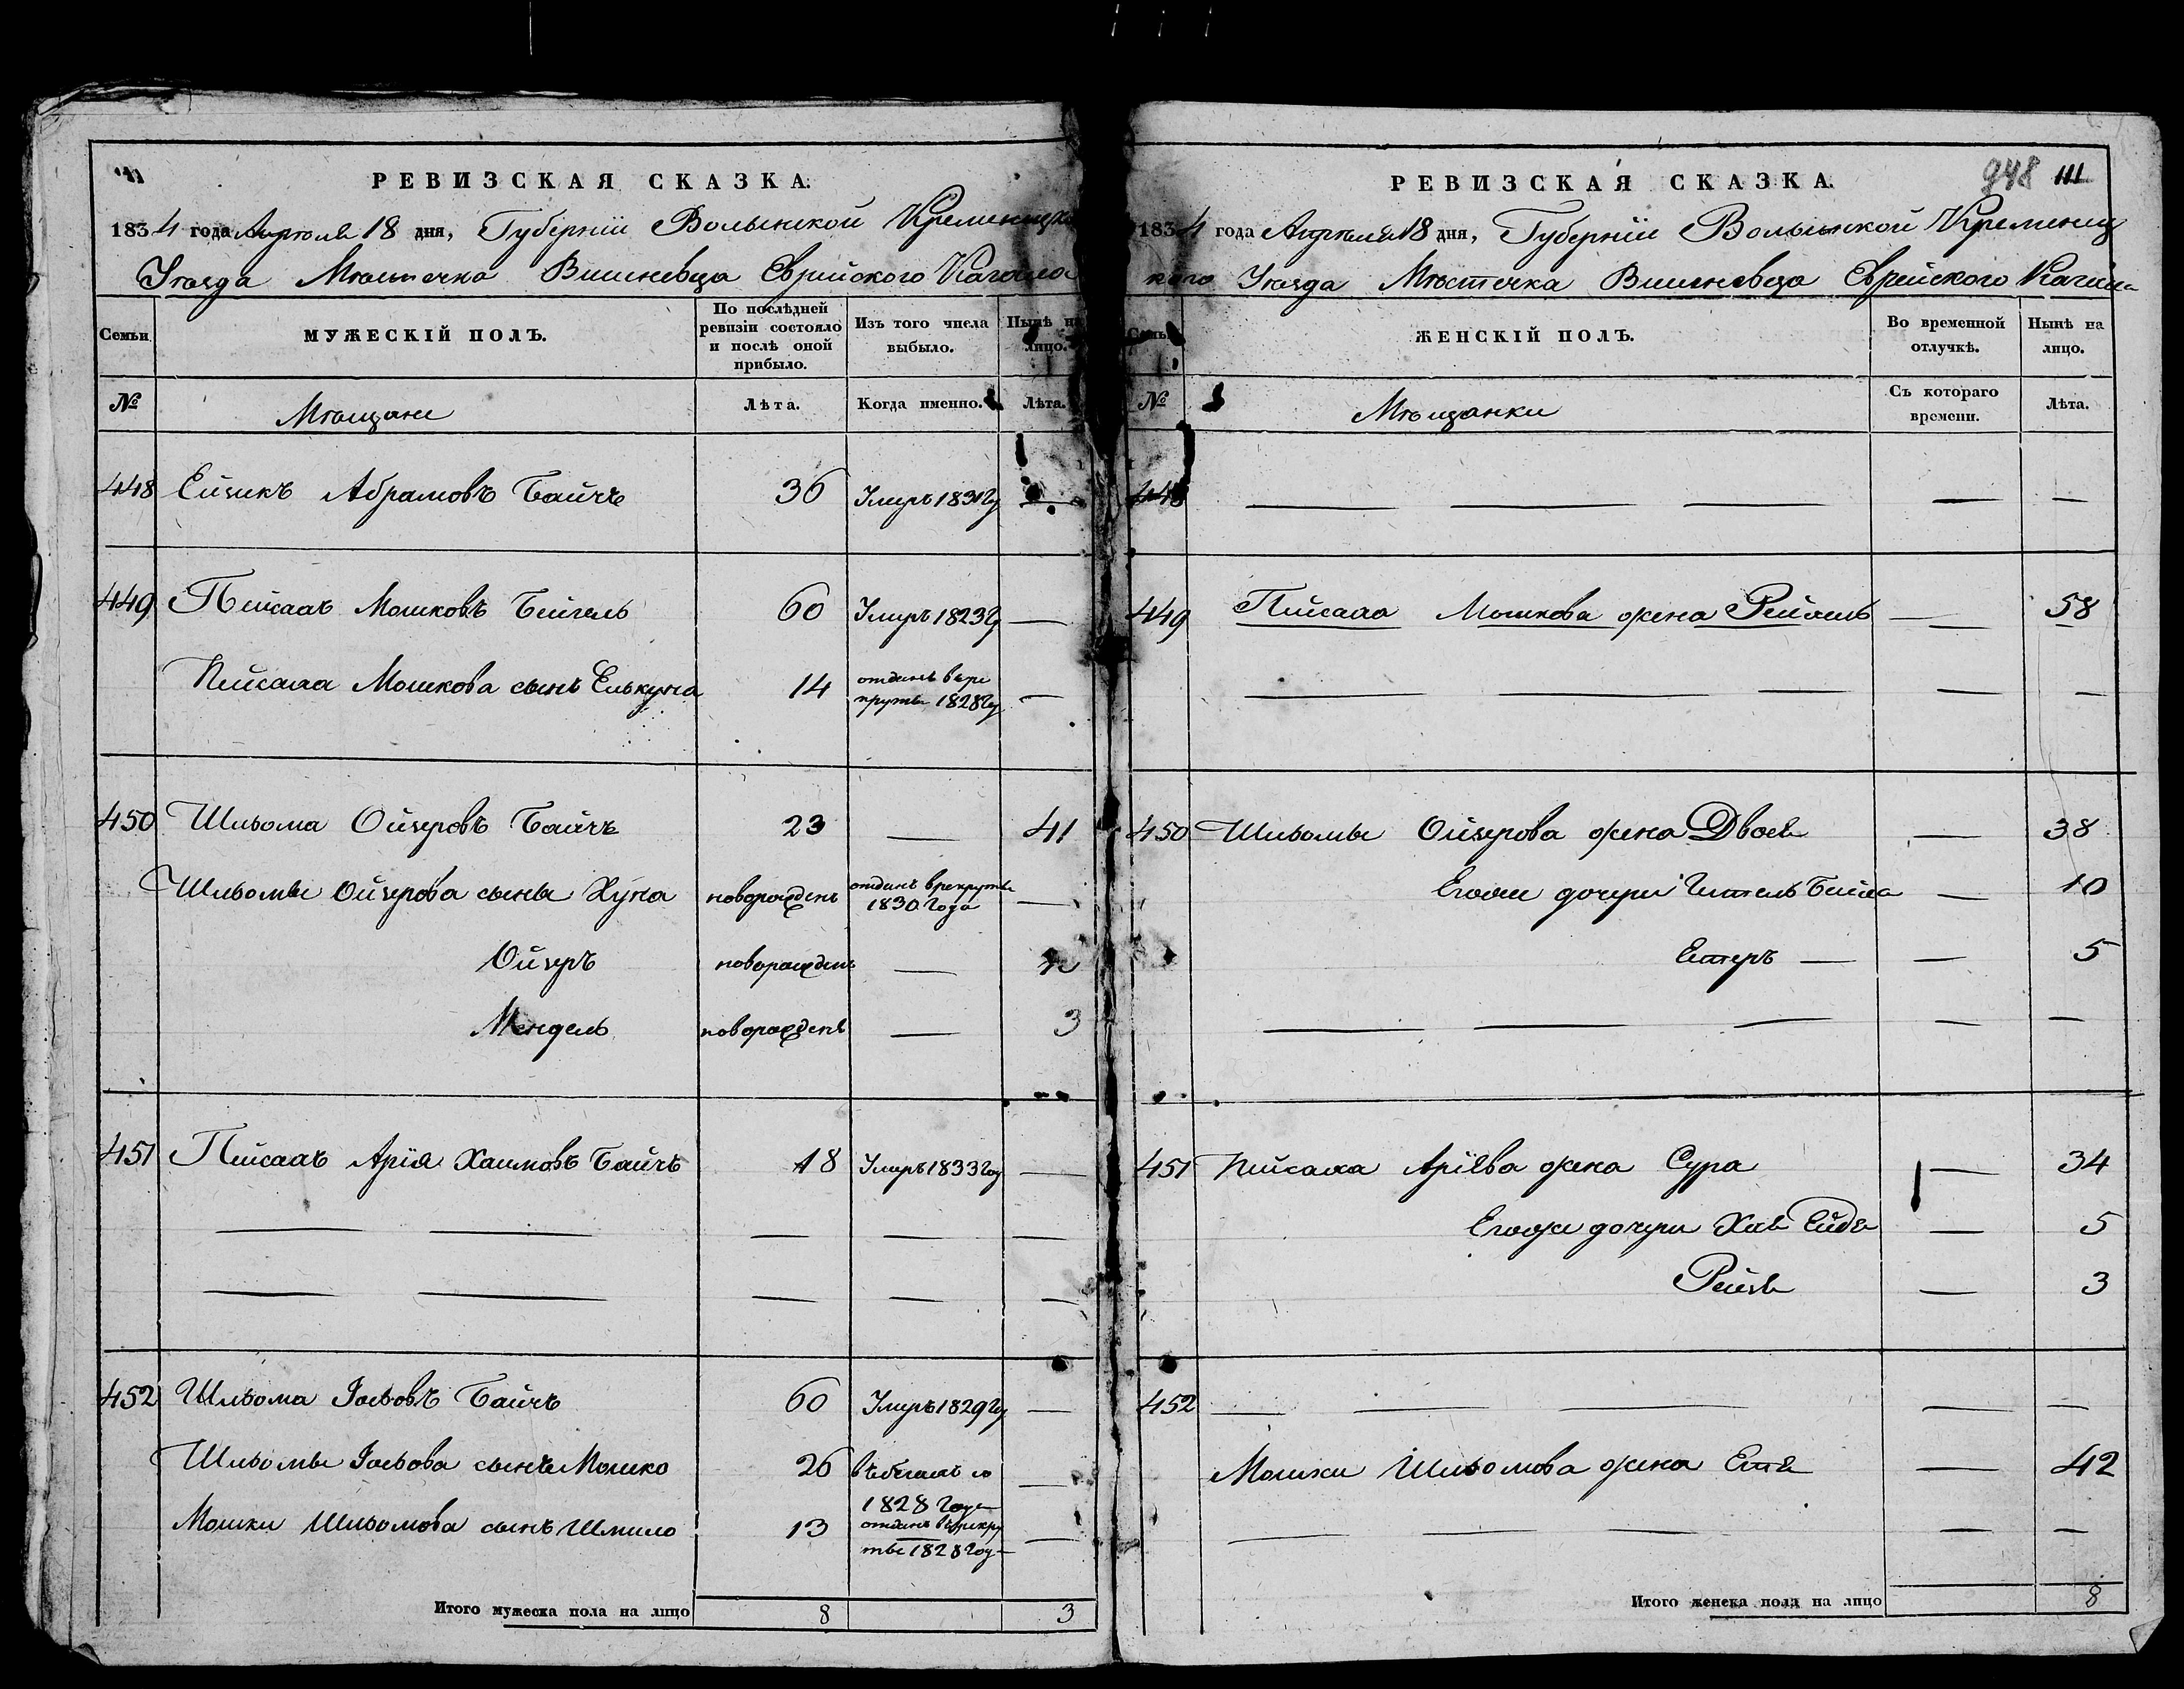 РЕВИЗСКАЯ СКАЗКА.
1834 года Апреля 18 дня, Губерніи Волынской Кременецка
Уѣзда Мѣстечка Вишневца Еврейского Кагала
Семьи
МУЖЕСКІЙ ПОЛЪ.
По послѣдней ревизіи состояло и послѣ оной прибыло.
Изъ того числа выбыло.
Нынѣ на лицо.
№
Мѣщане
Лѣта.
Когда именно.
Лѣта.
448 Ейзикъ Абрамовъ Байчъ 36 Умеръ 1831 Го —
449 Пейсахъ Мошковъ 60 Умеръ 1823 Г —
Пейсаха Мошкова сынъ Елькуна 14 отданъ въ ре
круты 1828 Го —
450 Шльома Ойзеровъ Байчъ 23 — 41
Шльомы Ойзерова сыны Хуна новорожденъ отданъ в рекруты
1830 Года —
Ойзеръ новорожденъ —
Мендель новорожденъ — 3
451 Пейсахъ Арія Хаимовъ Байчъ 18 Умеръ 1833 Год —
— — — — —
— — — — —
452 Шльома Іосьовъ Байчъ 60 Умеръ 1829 Го —
Шльомы Іосьова сынъ Мошко 26
1828 Года —
Мошки Шльомова сынъ Шмило 13 отданъ въ рекру
ты 1828 Году —
Итого мужеска пола на лицо 8 3
РЕВИЗСКАЯ СКАЗКА.
948 111
1834 года Апреля 18 дня, Губерніи Волынской Кременец
кого Уѣзда Мѣстечка Вишневца Еврейского Кагала
Семьи
ЖЕНСКІЙ ПОЛЪ.
Во временной отлучкѣ.
Нынѣ на лицо.
№
Мѣщанки
Съ котораго времени.
Лѣта.
448 — — — — —
449 Пейсаха Мошкова жена — 58
— — — — —
450 Шльомы Ойзерова жена Двося — 38
Егоже дочери Гитель Бейла — 10
Естеръ — — 5
— — — — —
451 Пейсаха Аріева жена Сура — 34
Егоже дочери Хая Ейдя — 5
Рейзя — 3
452 — — — — —
Мошки Шльомова жена Естя — 42
— — — — —
Итого женска пола на лицо 8